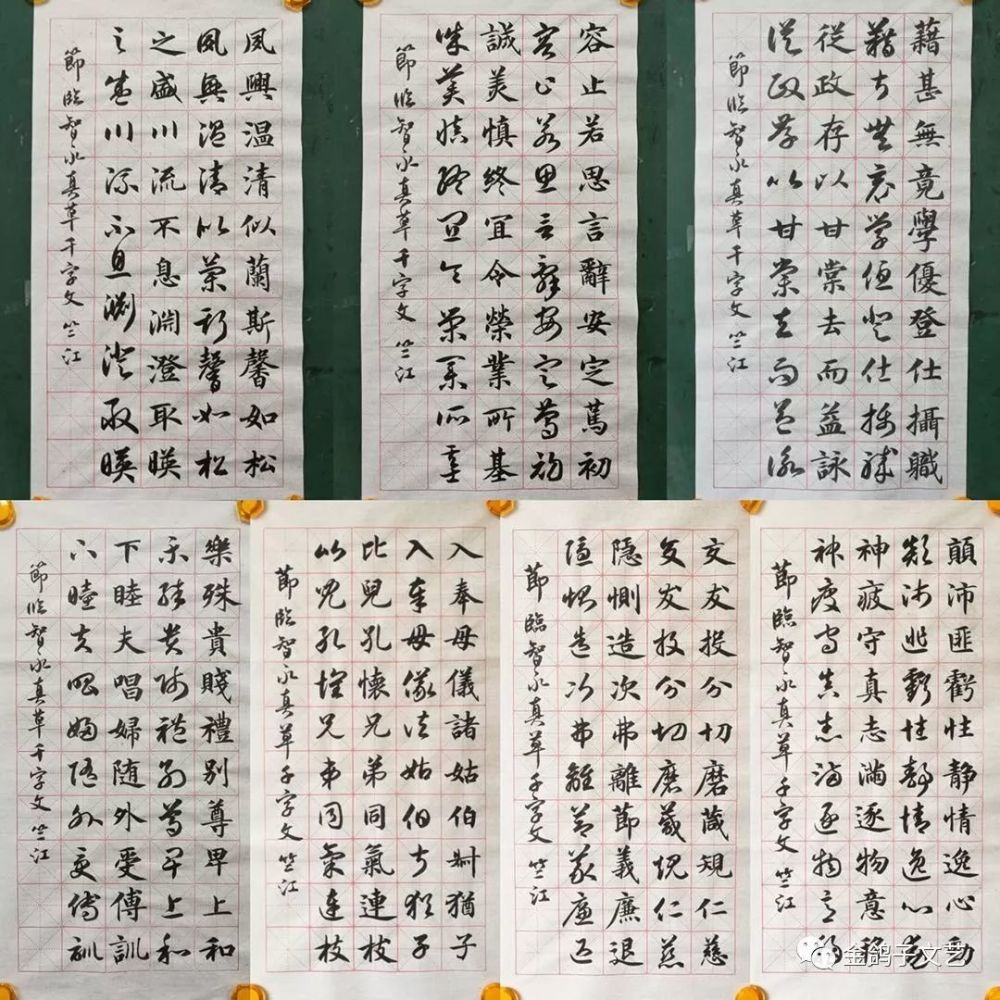 夙興温清似蘭斯馨如松
夙興温清似蘭斯馨如松
之盛川流不息淵澄取暎
之盛川流不息淵澄取暎
節臨智永真草千字文 竺江
容止若思言辭安定篤初
容止若思言辭安定篤初
誠美慎終宜令榮業所基
誠美慎終宜令榮業所基
節臨智永真草千字文 竺江
藉甚無竟學優登仕攝職
藉甚無竟學優登仕攝職
從政存以甘棠去而益詠
從政存以甘棠去而益詠
節臨智永真草千字文 竺江
樂殊貴賤禮别尊卑上和
樂殊貴賤禮别尊卑上和
下睦夫唱婦随外受傅訓
下睦夫唱婦随外受傅訓
節臨智永真草千字文 竺江
入奉母儀諸姑伯叔猶子
入奉母儀諸姑伯叔猶子
比兒孔懷兄弟同氣連枝
比兒孔懷兄弟同氣連枝
節臨智永真草千字文 竺江
交友投分切磨箴規仁慈
交友投分切磨箴規仁慈
隱惻造次弗離節義廉退
隱惻造次弗離節義廉退
節臨智永真草千字文 竺江
顛沛匪虧性静情逸心動
顛沛匪虧性静情逸心動
神疲守真志滿逐物意移
神疲守真志滿逐物意移
節臨智永真草千字文 竺江
金鸽子文艺